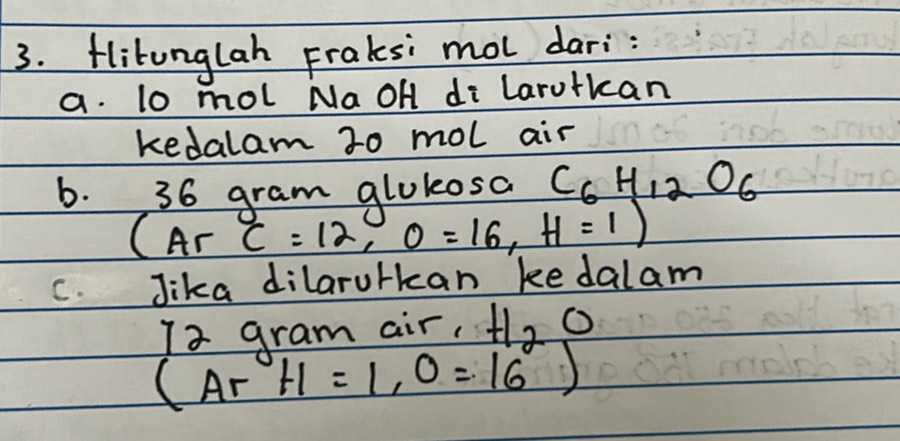 3. Hitunglah Fraksi mol dari :
a. 10 mol NaOH di larutkan
kedalam 20 mol air
b. 36 gram glukosa C₆H₁₂O₆
(Ar C = 12, O = 16, H = 1)
c. Jika dilarutkan kedalam
72 gram air, H₂O
(Ar H = 1, O = 16)